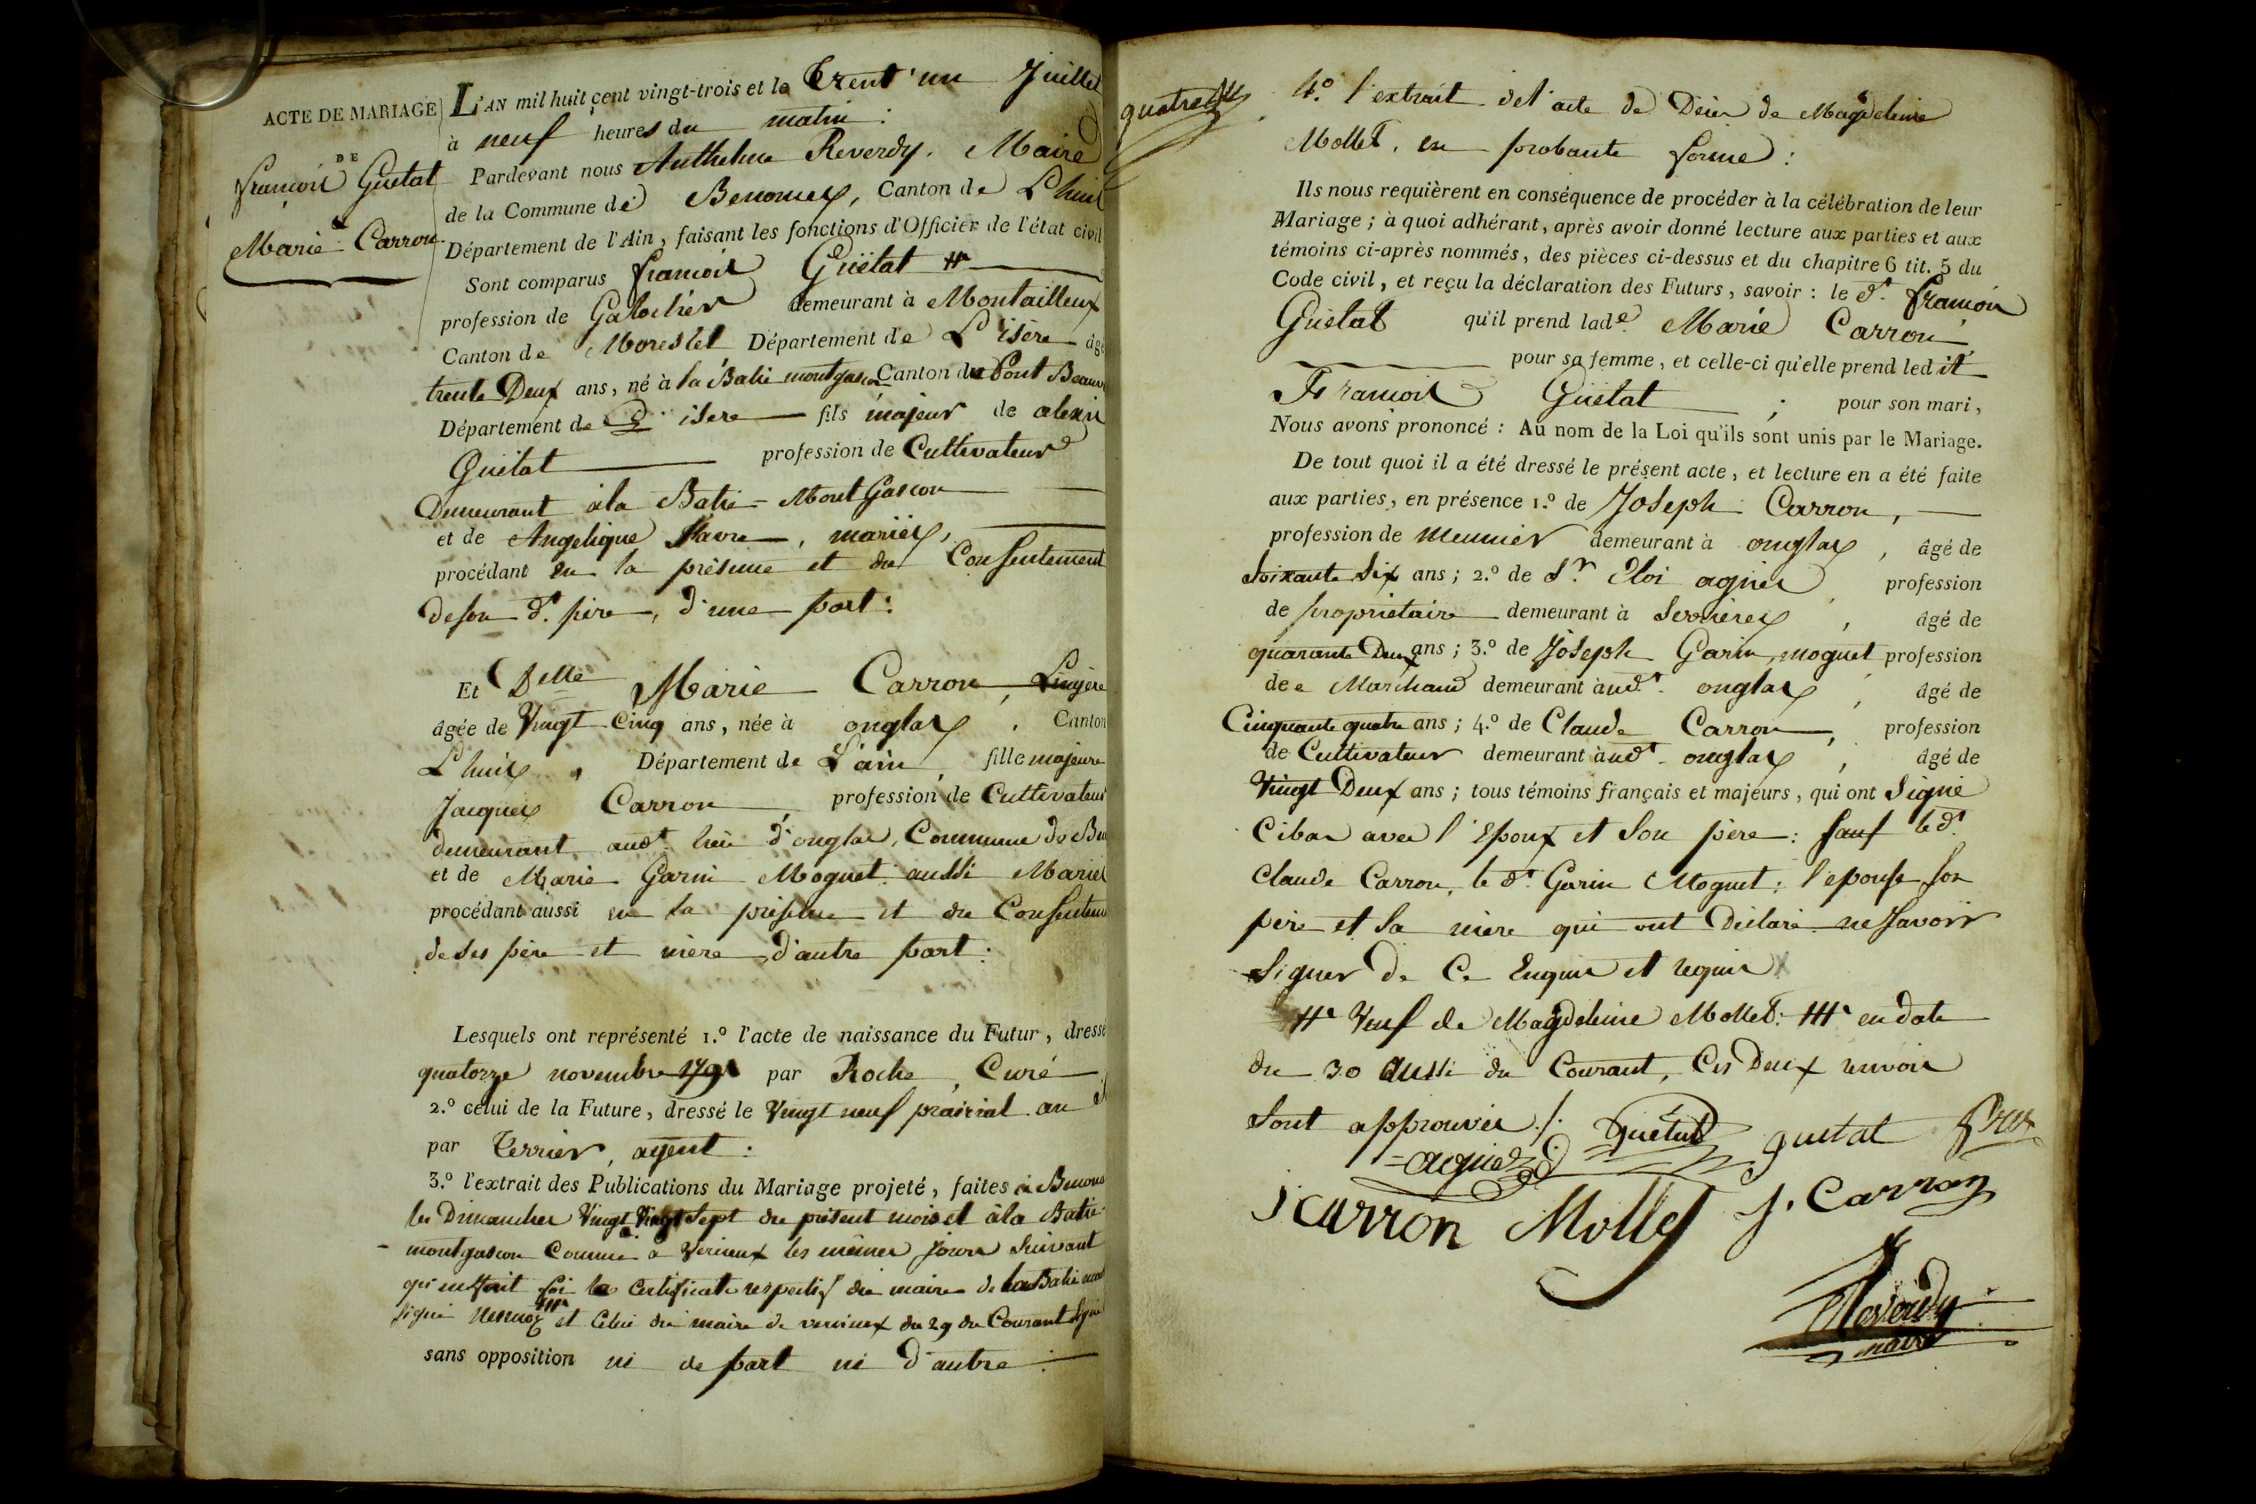 ACTE DE MARIAGE
DE
françois Guétat
&
Marie Carron
L'AN mil huit cent vingt-trois et le Trent'un Juillet
à neuf heures du matin :
Pardevant nous Anthelme Reverdy, Maire
de la Commune de Benonces, Canton de L'huis
Département de l'Ain, faisant les fonctions d'Officier de l'état civil
Sont comparus françois Guëtat #
profession de Galochér demeurant à Montailleux
Canton de Morestel Département de L'isère âgé
trente Deux ans, né à la Batie montgascon Canton du Pont Beauv
Département de L'isere fils majeur de alexis
Guëtat profession de Cultivateur
Demeurant à la Batie-Mont Gascon
et de Angelique Favre, mariés,
procédant en la présence et du Consentement
de son dt. père, d'une part :
Et Delle Marie Carron, Lingère
âgée de Vingt Cinq ans, née à onglas, Canton
L'huis, Département de L'ain, fille majeure
Jacques Carron, profession de Cultivateur
demeurant audt. lieu d'onglas, Commune de Be
et de Marie Garin Moguet aussi Mariés
procédant aussi en la présence et du Consentem
de ses père et mère, d'autre part :
Lesquels ont représenté 1.º l'acte de naissance du Futur, dressé
quatorze novembre 1791 par Roche, Curé
2.º celui de la Future, dressé le Vingt neuf prairial an
par Terrier, agent :
3.º l'extrait des Publications du Mariage projeté, faites à Benonc
les Dimanches Vingt & Vingt Sept du présent mois et à la Batie
-montgascon Comme à Verieux les mêmes jours Suivant
qu'en font foi les Certificats respectifs du maire de la Batie mont
signé et Celui du maire de du 29 du Courant signé
sans opposition ni de part ni d'autre :
4.º l'extrait de l'acte de Décès de Magdeleine
Mollet, en probante forme :
Ils nous requièrent en conséquence de procéder à la célébration de leur
Mariage ; à quoi adhérant, après avoir donné lecture aux parties et aux
témoins ci-après nommés, des pièces ci-dessus et du chapitre 6 tit. 5 du
Code civil, et reçu la déclaration des Futurs, savoir : le dt. françois
Guëtat qu'il prend lade. Marie Carron
pour sa femme, et celle-ci qu'elle prend ledit
François Guëtat ; pour son mari,
Nous avons prononcé : Au nom de la Loi qu'ils sont unis par le Mariage.
De tout quoi il a été dressé le présent acte, et lecture en a été faite
aux parties, en présence 1.º de Joseph Carron,
profession de meunier demeurant à onglas, âgé de
Soixante Six ans ; 2.º de Sr. Eloi agnies, profession
de propriétaire demeurant à Serrieres, âgé de
quarante Deux ans ; 3.º de Joseph Garin, moguet profession
de Marchand demeurant audt. onglas, âgé de
Cinquante quatre ans ; 4.º de Claude Carron, profession
de Cultivateur demeurant audt. onglas, âgé de
Vingt Deux ans ; tous témoins français et majeurs, qui ont Signé
Cibas avec l'Epoux et Son père : Sauf le dt.
Claude Carron, le dt. Garin Moguet ; l'epouse son
père et Sa mère qui ont Déclaré ne Savoir
Signer de Ce Enquis et requis
# Veuf de Magdeleine Mollet : ## en date
du 30 aussi du Courant, Ces Deux renvois
Sont approuvés /.
Guëtat guetat
agniez
j carron Mollet J. Carron
Reverdy
maire